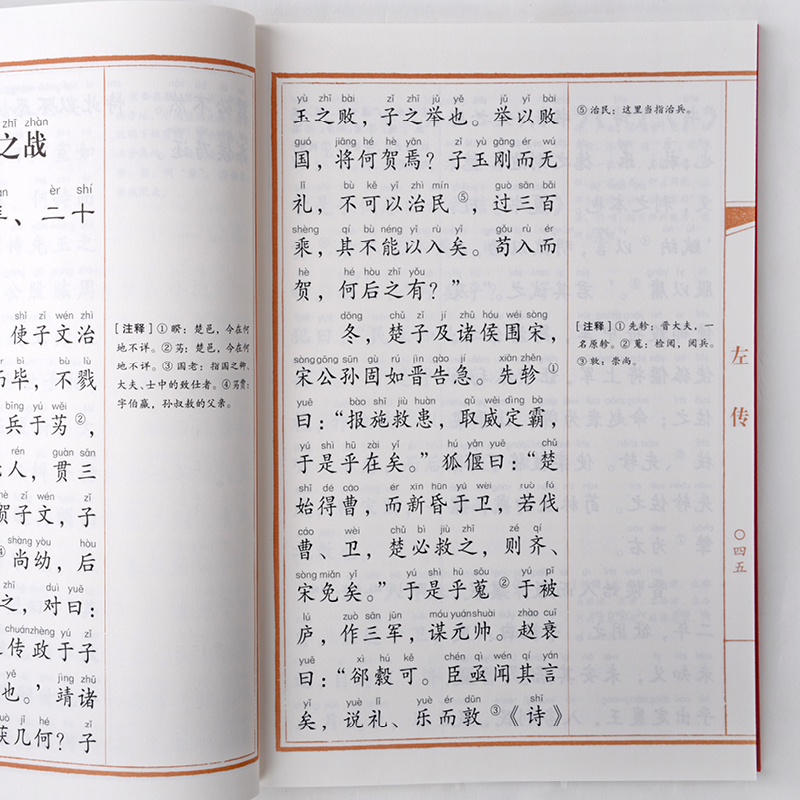 zhī zhàn
之战
èr shí
、二十
shǐ zǐ wén zhì
使子文治
bì bù lù
毕，不戮
bīng yú wěi
兵于𫇭②，
rén guàn sān
人，贯三
hè zǐ wén zǐ
贺子文，子
shàng yòu hòu
④尚幼，后
zhī duì yuē
之，对曰：
chuán zhèng yú zǐ
传政于子
yě jìng zhū
也。’靖诸
huò jǐ hé zǐ
获几何？子
[注释]①睽：楚邑，今在何
地不详。②𫇭：楚邑，今在何
地不详。③国老：指国之卿、
大夫、士中的致仕者。④𫇭贾：
字伯嬴，孙叔敖的父亲。
yù zhī bài zǐ zhī jǔ yě jǔ yǐ bài
玉之败，子之举也。举以败
guó jiāng hé hè yān zǐ yù gāng ér wú
国，将何贺焉？子玉刚而无
lǐ bù kě yǐ zhì mín guò sān bǎi
礼，不可以治民⑤，过三百
shèng qí bù néng yǐ rù yǐ gǒu rù ér
乘，其不能以入矣。苟入而
hè hé hòu zhī yǒu
贺，何后之有？”
dōng chǔ zǐ jí zhū hóu wéi sòng
冬，楚子及诸侯围宋，
sòng gōng sūn gù rú jìn gào jí xiān zhěn
宋公孙固如晋告急。先轸①
yuē bào shī jiù huàn qǔ wēi dìng bà
曰：“报施救患，取威定霸，
yú shì hū zài yǐ hú yǎn yuē chǔ
于是乎在矣。”狐偃曰：“楚
shǐ dé cáo ér xīn hūn yú wèi ruò fá
始得曹，而新昏于卫，若伐
cáo wèi chǔ bì jiù zhī zé qí
曹、卫，楚必救之，则齐、
sòng miǎn yǐ yú shì hū sōu yú pī
宋免矣。”于是乎蒐②于被
lú zuò sān jūn móu yuán shuài zhào cuī
庐，作三军，谋元帅。赵衰
yuē xì hú kě chén qì wén qí yán
曰：“郤縠可。臣亟闻其言
yǐ yuè lǐ yuè ér dūn shī
矣，说礼、乐而敦③《诗》
⑤治民：这里当指治兵。
[注释]①先轸：晋大夫，一
名原轸。②蒐：检阅，阅兵。
③敦：崇尚。
左传
〇四五